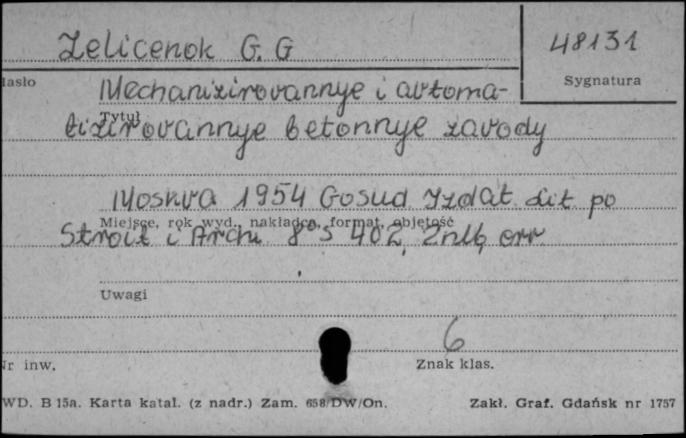 Zelicenok G. G
48131
Hasło
Sygnatura
Mechanizirovannye i avtoma-
Tytuł
tizirovannye betonnye zavody
Moskva 1954 Gosud Izdat Lit po
Miejsce, rok wyd., nakładca, format, objętość
Stroit i Arch. 8° s 402,
Uwagi
6
Nr inw.
Znak klas.
WD. B 15a. Karta katal. (z nadr.) Zam. 658/DW/On.
Zakł. Graf. Gdańsk nr 1757